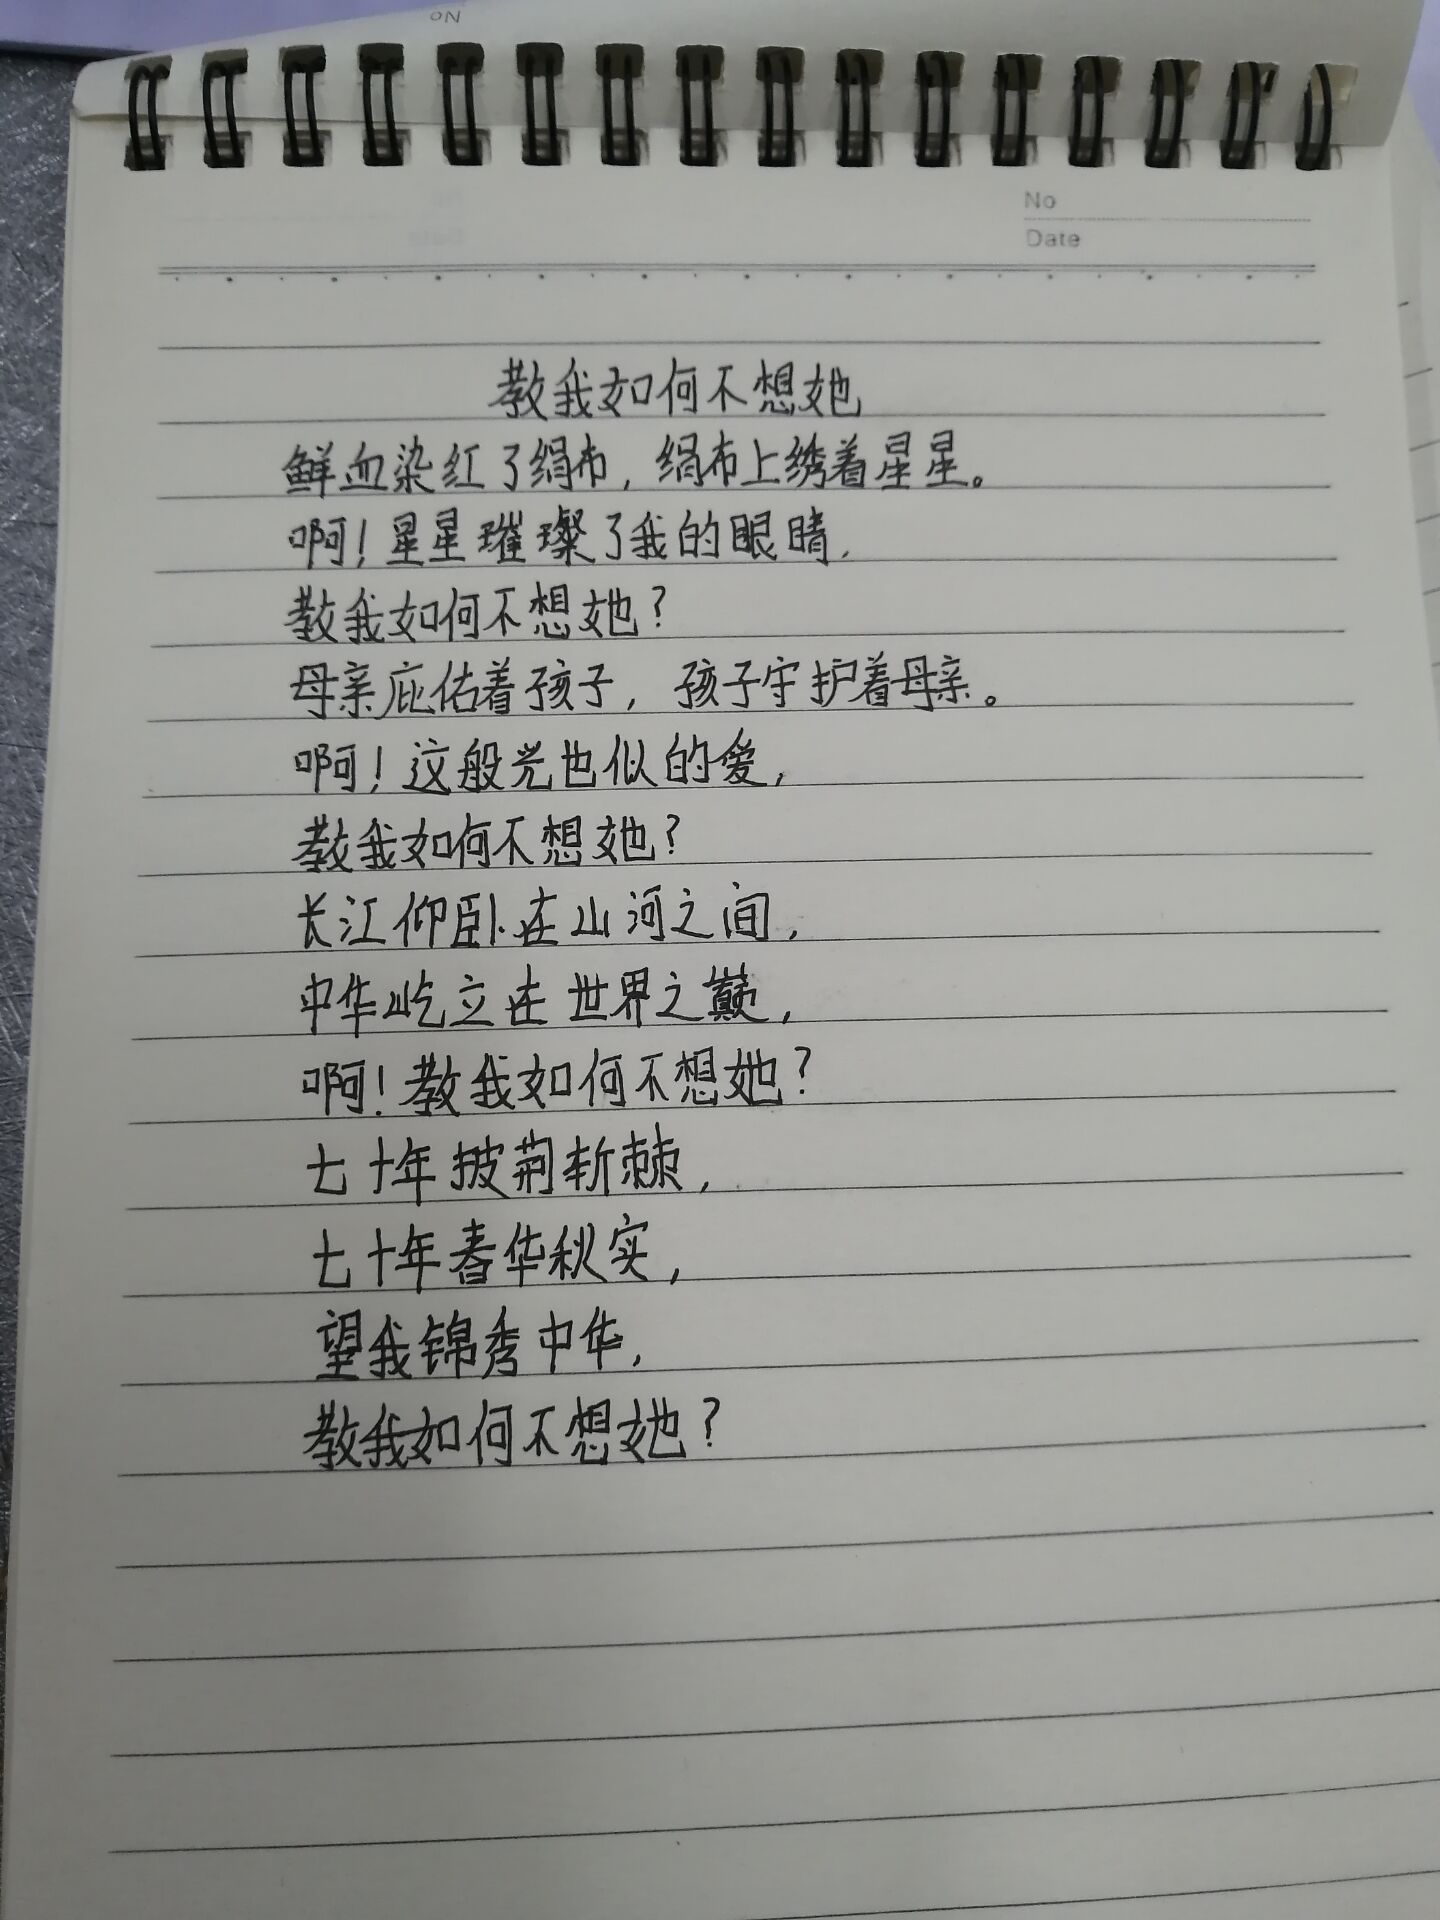 No
No
Date
教我如何不想她
鲜血染红了绢布，绢布上绣着星星。
啊！星星璀璨了我的眼睛，
教我如何不想她？
母亲庇佑着孩子，孩子守护着母亲。
啊！这般光也似的爱，
教我如何不想她？
长江仰卧在山河之间，
中华屹立在世界之巅，
啊！教我如何不想她？
七十年披荆斩棘，
七十年春华秋实，
望我锦秀中华，
教我如何不想她？